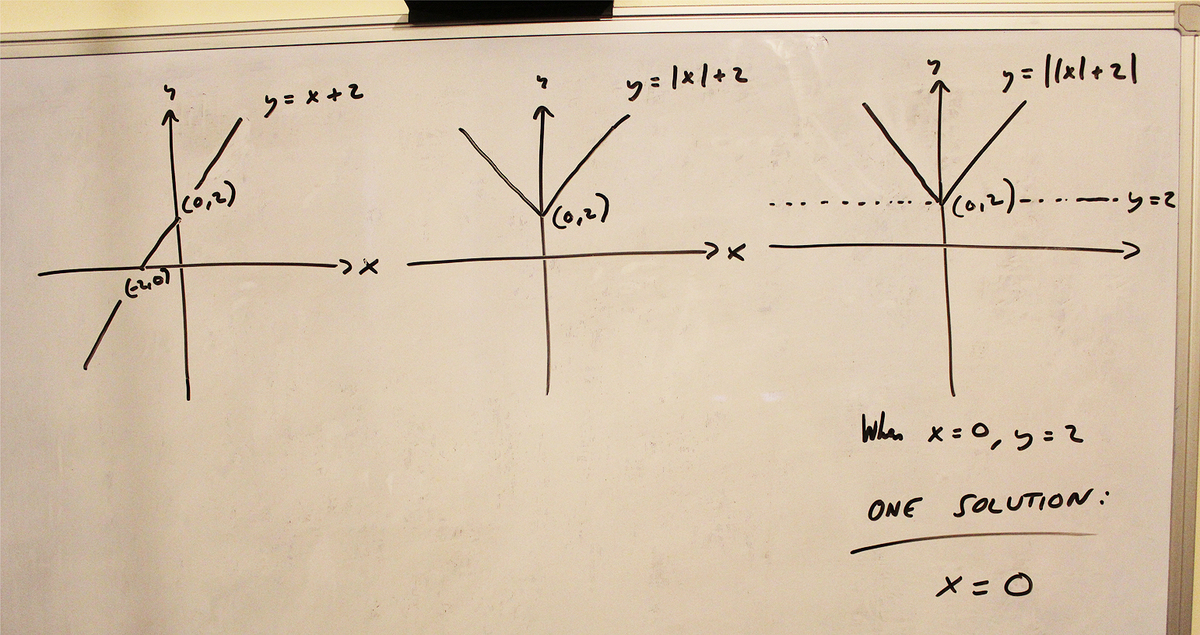 y
y = x + 2
(0,2)
(-2,0)
x
y
y = |x| + 2
(0,2)
x
y
y = ||x| + 2|
(0,2)
y = 2
When x = 0, y = 2
ONE SOLUTION:
x = 0